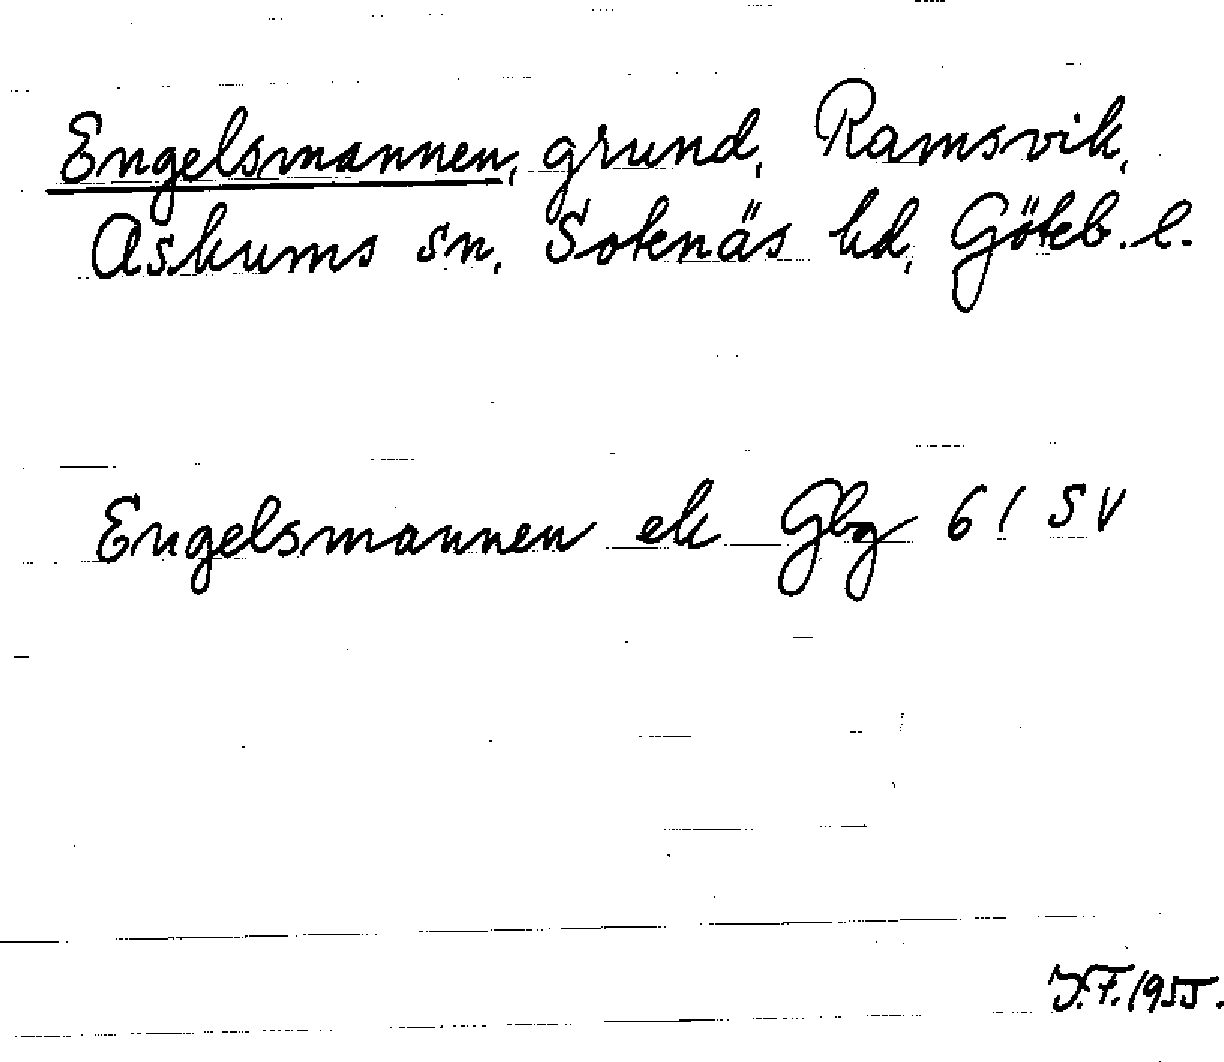 Engelsmannen, grund, Ramsvik,
Askums sn, Sotenäs hd, Göteb. l.
Engelsmannen ek Gbg 61 SV
J.F. 1955.